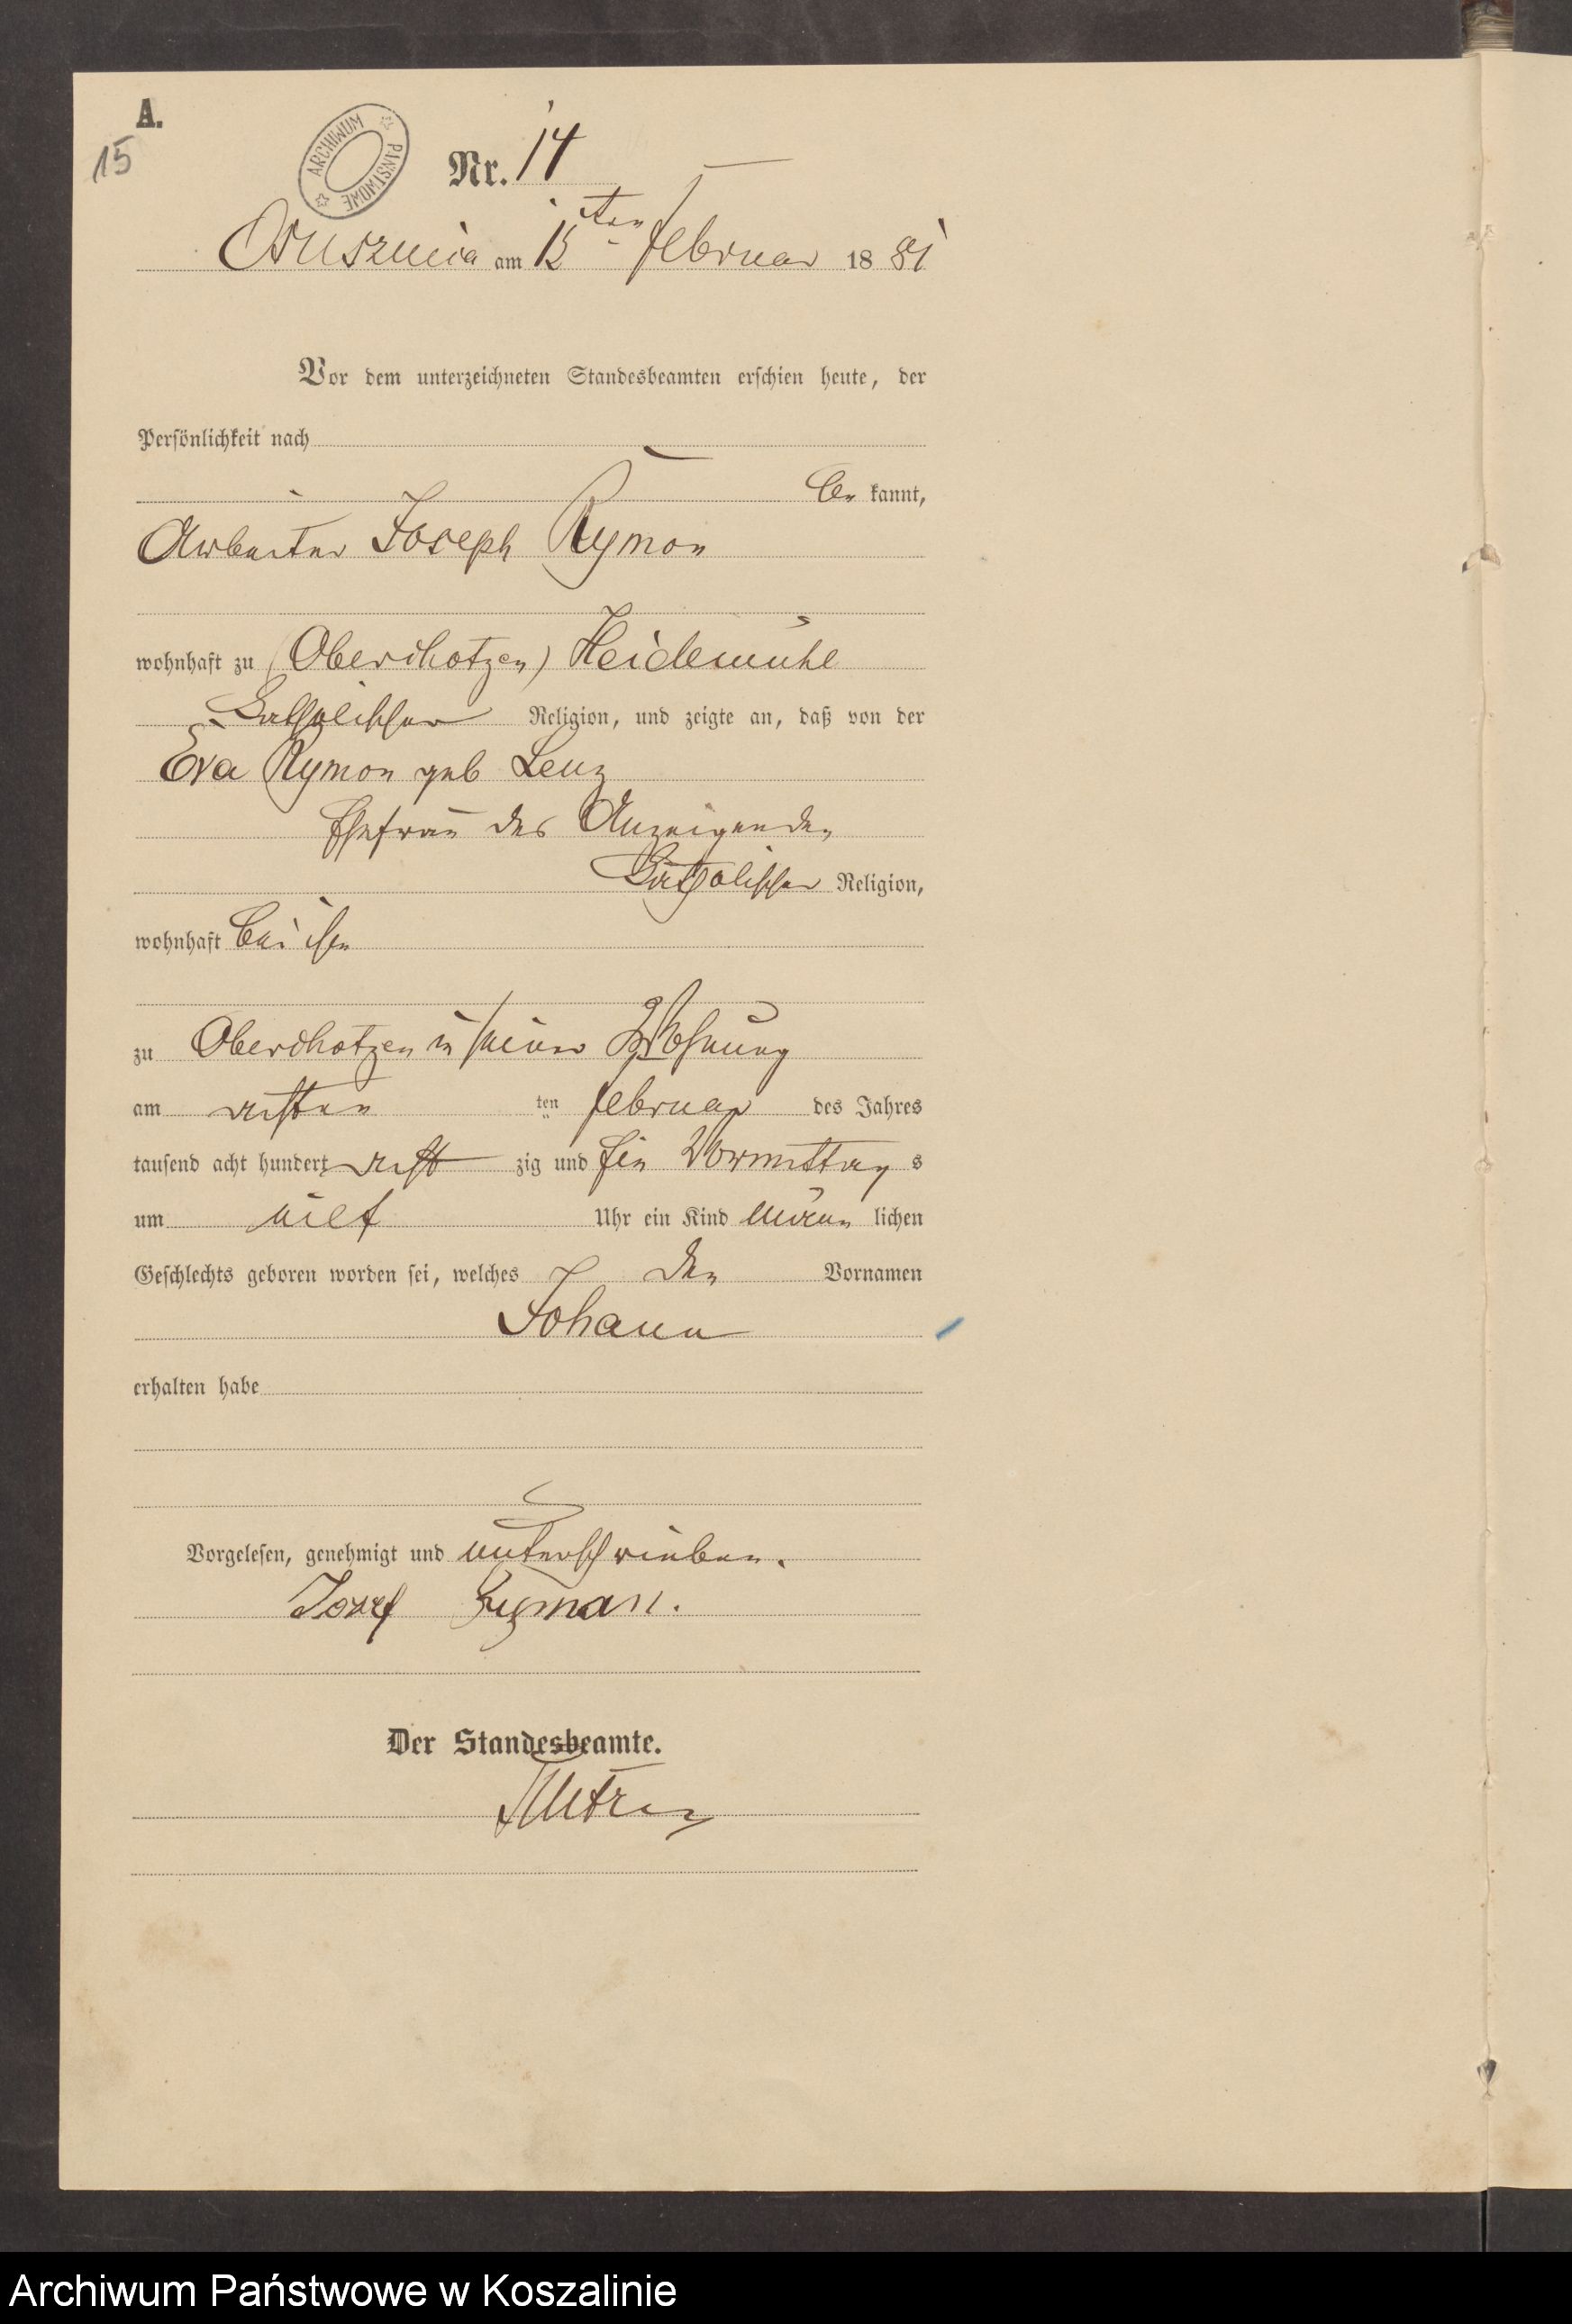 A.
15
ARCHIWUM PAŃSTWOWE
Nr. 14
am 15ten Februar 1881
Vor dem unterzeichneten Standesbeamten erschien heute, der
Persönlichkeit nach
be kannt,
Arbeiter Joseph Rymon
wohnhaft zu (Oberchotzen) Heidemühl
katholischer Religion, und zeigte an, daß von der
Eva Rymon geb Lenz
Ehefrau des Anzeigenden
katholischer Religion,
wohnhaft bei ihm
zu Oberchotzen in seiner Wohnung
am achten ten Februar des Jahres
tausend acht hundert acht zig und ein Vormittag s
um Uhr ein Kind männ lichen
Geschlechts geboren worden sei, welches den Vornamen
Johann
erhalten habe
Vorgelesen, genehmigt und unterschrieben.
Jozef Ryman.
Der Standesbeamte.
Archiwum Państwowe w Koszalinie